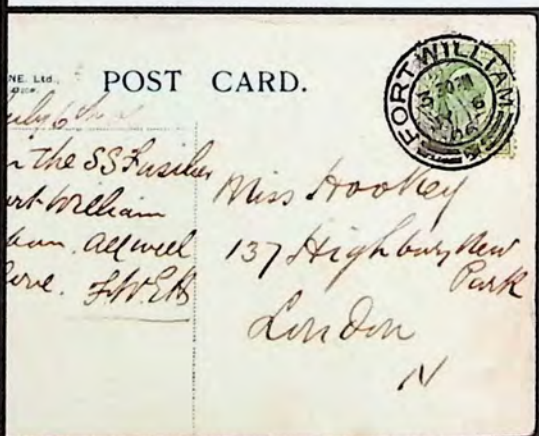 NE. Ltd.,
POST CARD.
FORT WILLIAM
July 6th
the SS Fusilier
William
all well
love. F.W.E.H
Miss Hookey
137 Highbury New
Park
London
N